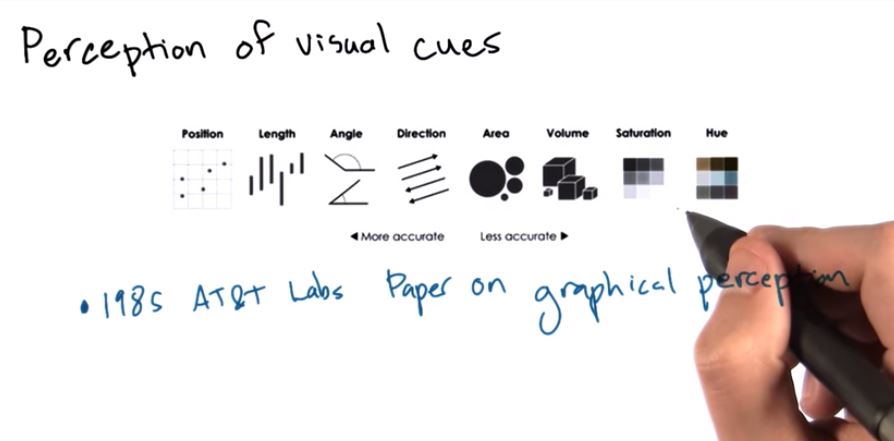 Perception of visual cues
Position Length Angle Direction Area Volume Saturation Hue
◄ More accurate Less accurate ►
• 1985 AT&T Labs Paper on graphical perception